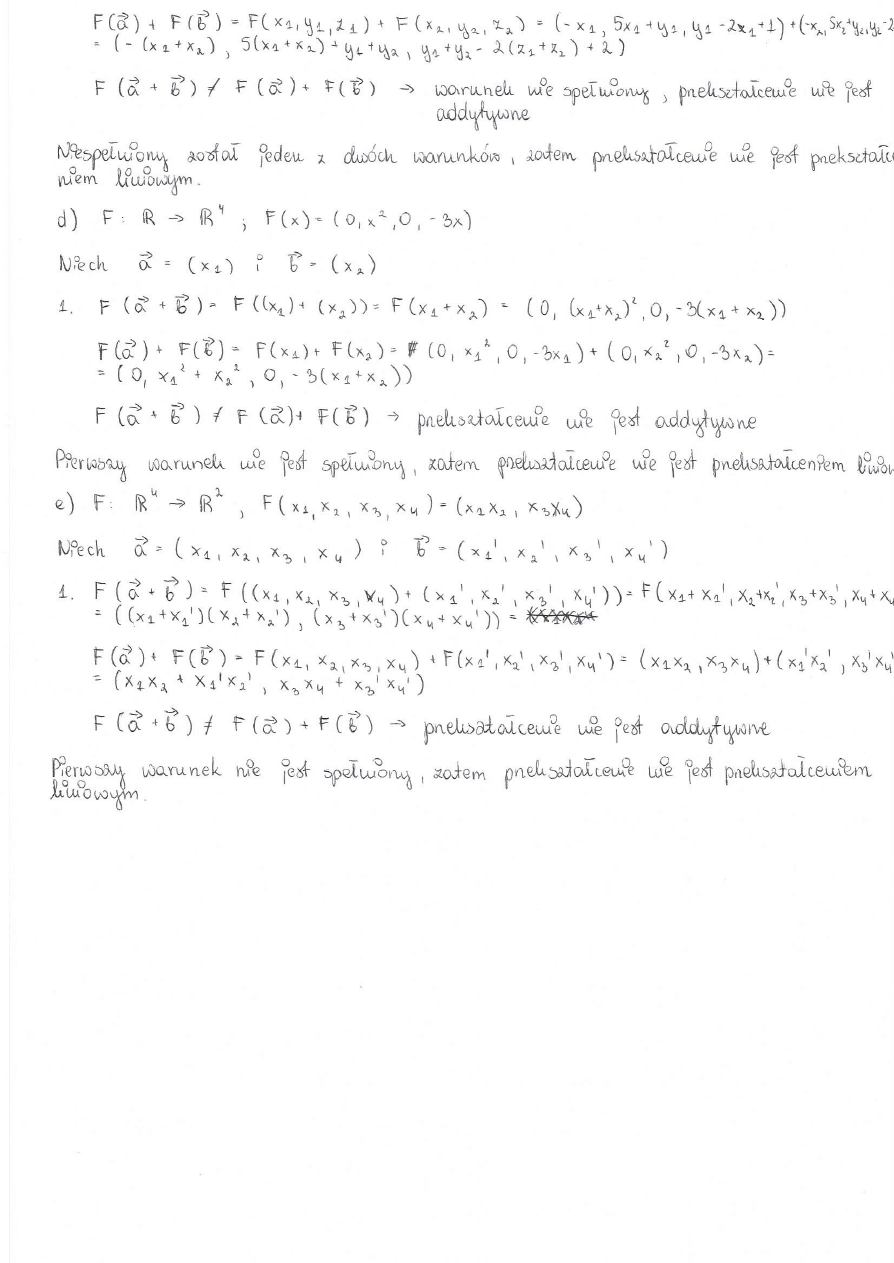 F(a⃗) + F(b⃗) = F(x₁, y₁, z₁) + F(x₂, y₂, z₂) = (-x₁, 5x₁+y₁, y₁-2z₁+1) + (-x₂, 5x₂+y₂, y₂-2
= (-(x₁+x₂), 5(x₁+x₂)+y₁+y₂, y₁+y₂-2(z₁+z₂)+2)
F(a⃗ + b⃗) ≠ F(a⃗) + F(b⃗) → warunek nie spełniony, przekształcenie nie jest
addytywne
Niespełniony został jeden z dwóch warunków, zatem przekształcenie nie jest przekształce
niem liniowym.
d) F: ℝ → ℝ⁴ ; F(x) = (0, x², 0, -3x)
Niech a⃗ = (x₁) i b⃗ = (x₂)
1. F(a⃗ + b⃗) = F((x₁) + (x₂)) = F(x₁+x₂) = (0, (x₁+x₂)², 0, -3(x₁+x₂))
F(a⃗) + F(b⃗) = F(x₁) + F(x₂) = (0, x₁², 0, -3x₁) + (0, x₂², 0, -3x₂) =
= (0, x₁² + x₂², 0, -3(x₁+x₂))
F(a⃗ + b⃗) ≠ F(a⃗) + F(b⃗) → przekształcenie nie jest addytywne
Pierwszy warunek nie jest spełniony, zatem przekształcenie nie jest przekształceniem liniow
e) F: ℝ⁴ → ℝ², F(x₁, x₂, x₃, x₄) = (x₁x₂, x₃x₄)
Niech a⃗ = (x₁, x₂, x₃, x₄) i b⃗ = (x₁', x₂', x₃', x₄')
1. F(a⃗ + b⃗) = F((x₁, x₂, x₃, x₄) + (x₁', x₂', x₃', x₄')) = F(x₁+x₁', x₂+x₂', x₃+x₃', x₄+x₄
= ((x₁+x₁')(x₂+x₂'), (x₃+x₃')(x₄+x₄')) =
F(a⃗) + F(b⃗) = F(x₁, x₂, x₃, x₄) + F(x₁', x₂', x₃', x₄') = (x₁x₂, x₃x₄) + (x₁'x₂', x₃'x₄'
= (x₁x₂ + x₁'x₂', x₃x₄ + x₃'x₄')
F(a⃗ + b⃗) ≠ F(a⃗) + F(b⃗) → przekształcenie nie jest addytywne
Pierwszy warunek nie jest spełniony, zatem przekształcenie nie jest przekształceniem
liniowym.